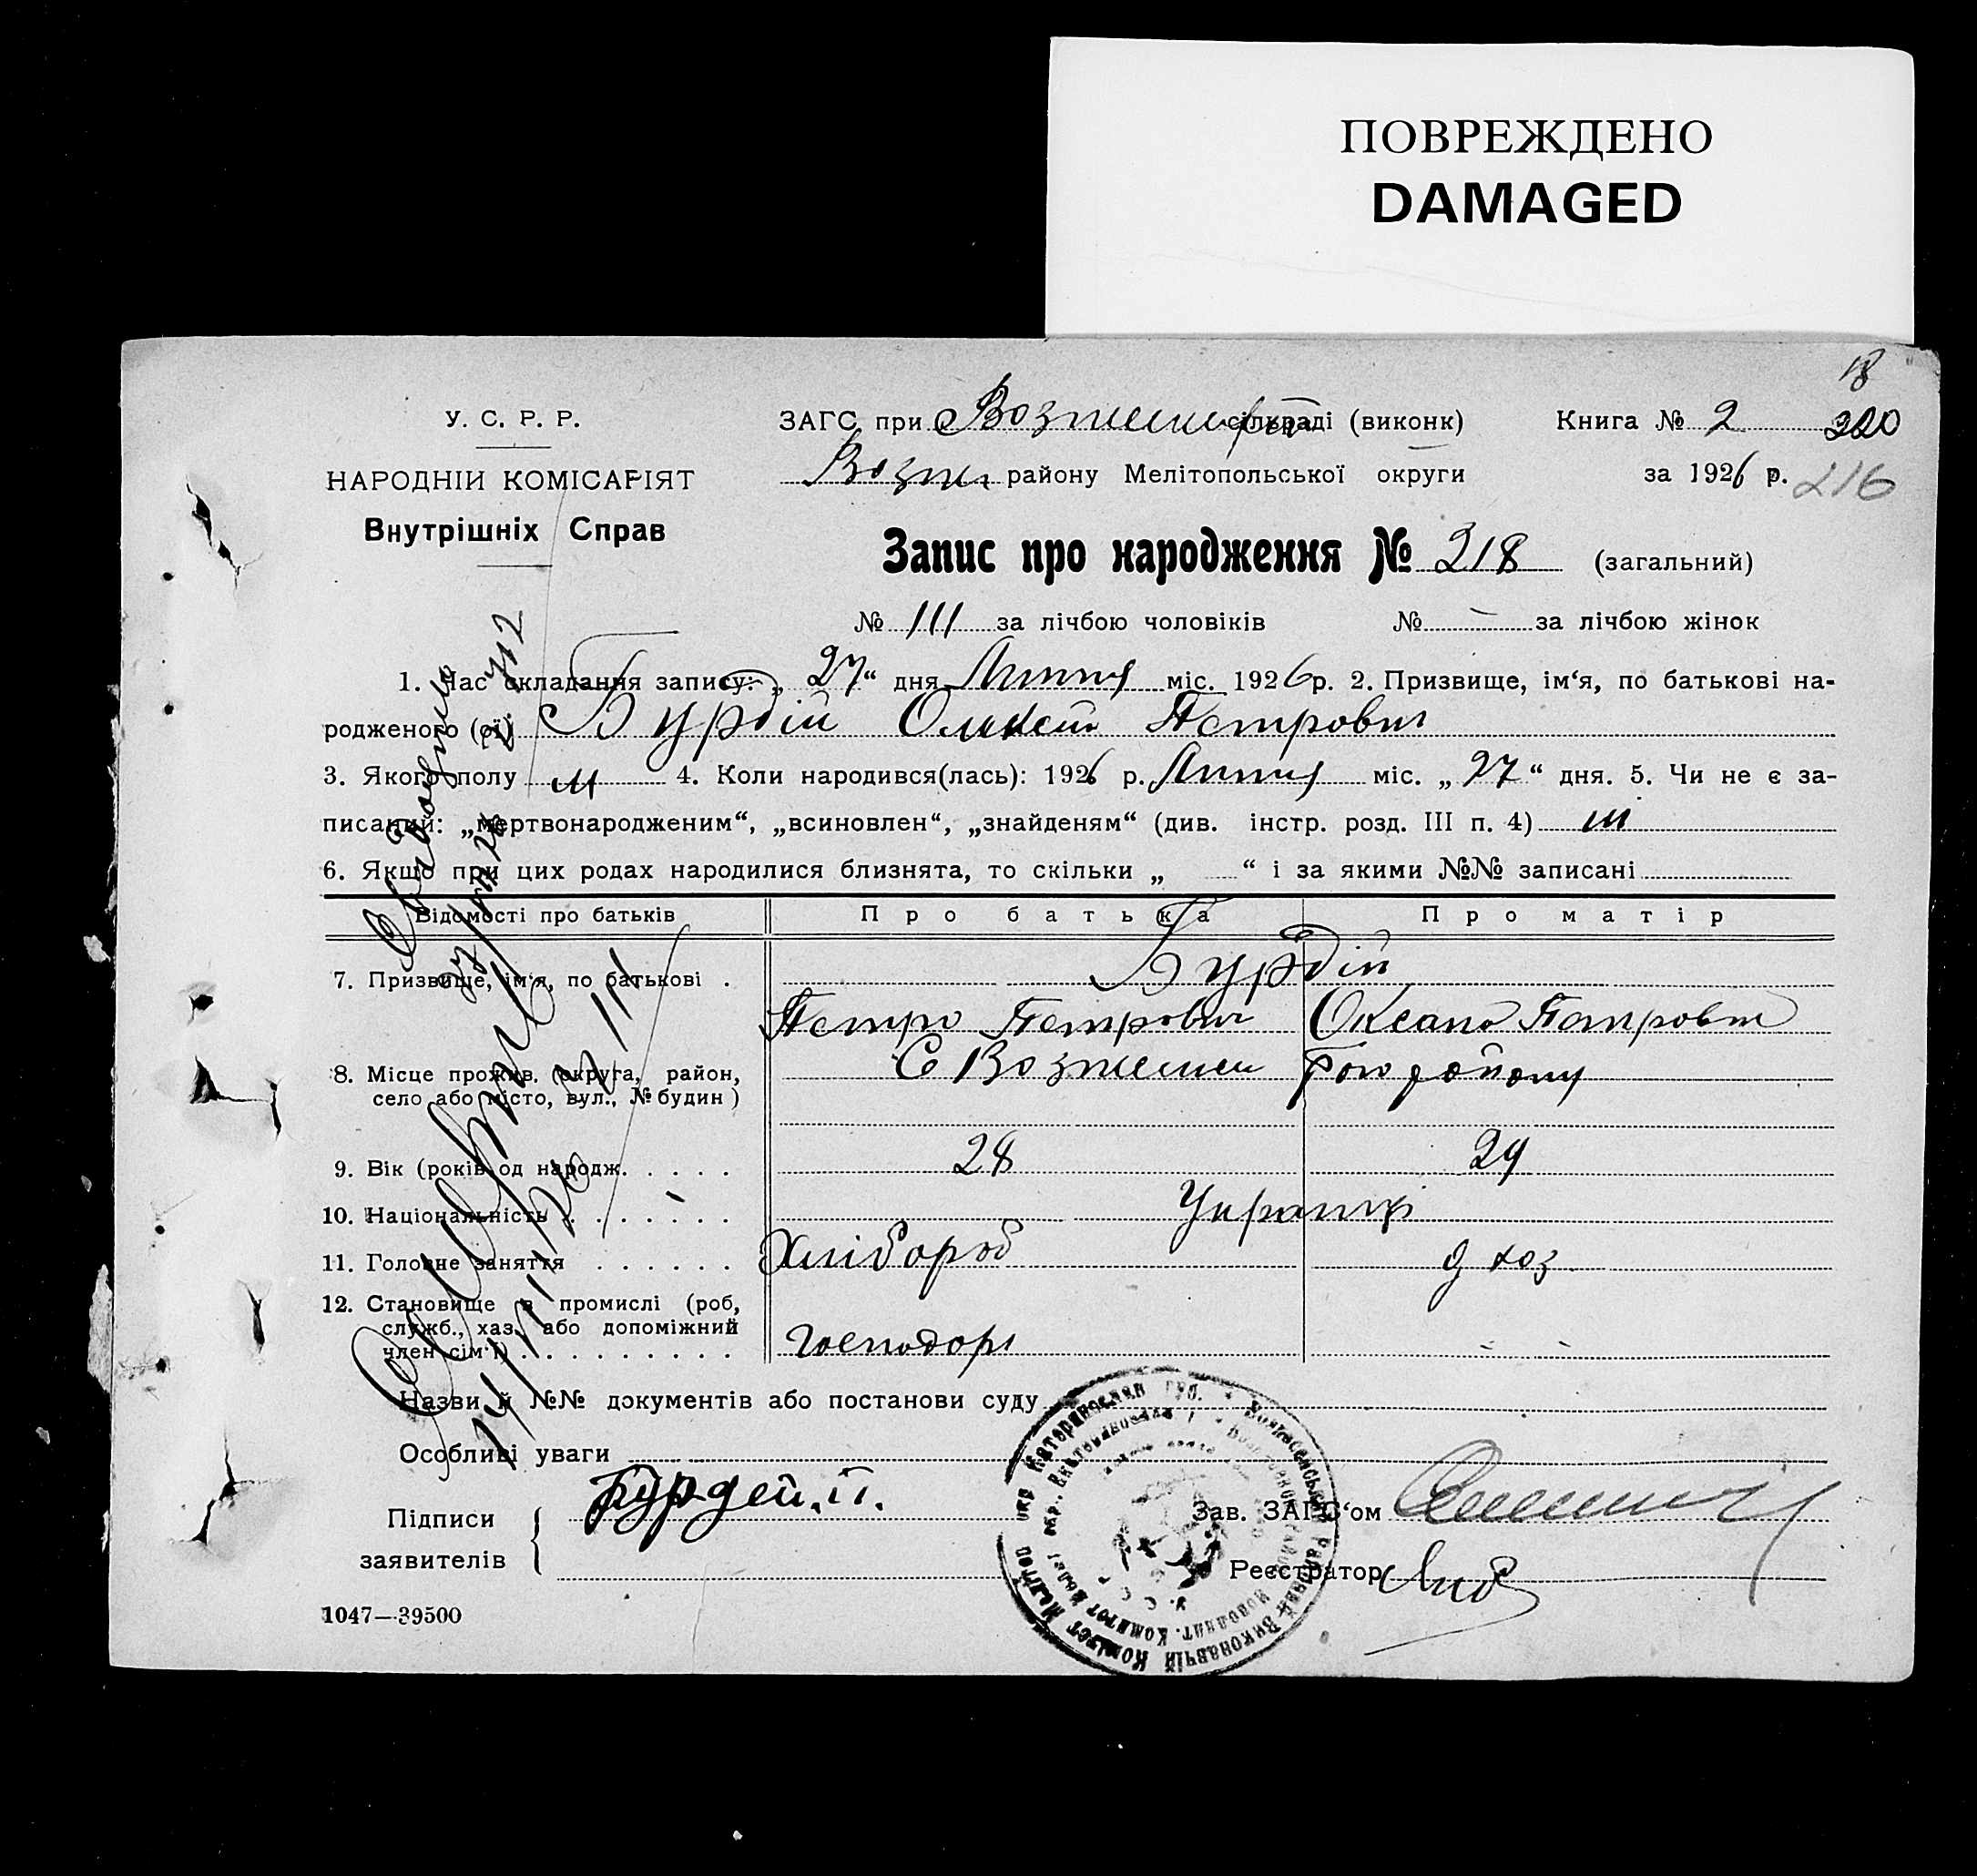 ПОВРЕЖДЕНО
DAMAGED
18
У. С. Р. Р.
ЗАГС при сільраді (виконк) Книга № 2 320
НАРОДНІЙ КОМІСАРІЯТ
Возн районy Мелітопольської округи за 1926 р. 216
Внутрішніх Справ
Запис про народження № 218 (загальний)
№ 111 за лічбою чоловіків № – за лічбою жінок
1. Час складання запису: „27“ дня Липня міс. 1926 р. 2. Призвище, ім‘я, по батькові на-
родженого (ої) Бурдій Олексій Петрович
3. Якого полу м 4. Коли народився(лась): 1926 р. Липня міс. „27“ дня. 5. Чи не є за-
писаний: „мертвонародженим“, „всиновлен“, „знайденям“ (див. інстр. розд. III п. 4)
6. Якщо при цих родах народилися близнята, то скільки „ “ і за якими №№ записані
Відомості про батьків Про батька Про матір
7. Призвище, ім‘я, по батькові . Бурдій
Петро Петрович Оксана Петровна
8. Місце прожив. (округа, район, С Вознесен району
село або місто, вул., № будин)
9. Вік (років од народж. . . . . 28 29
10. Національність . . . . . . . Українці
11. Головне заняття . . . . . . Хлібороб д хоз
12. Становище в промислі (роб,
служб., хаз. або допоміжний
член сім‘ї) . . . . . . . . . господар – –
Назви й №№ документів або постанови суду
Особливі уваги
Підписи
заявителів
Бурдей. П.
Зав. ЗАГС‘ом
Реєстратор
1047—39500